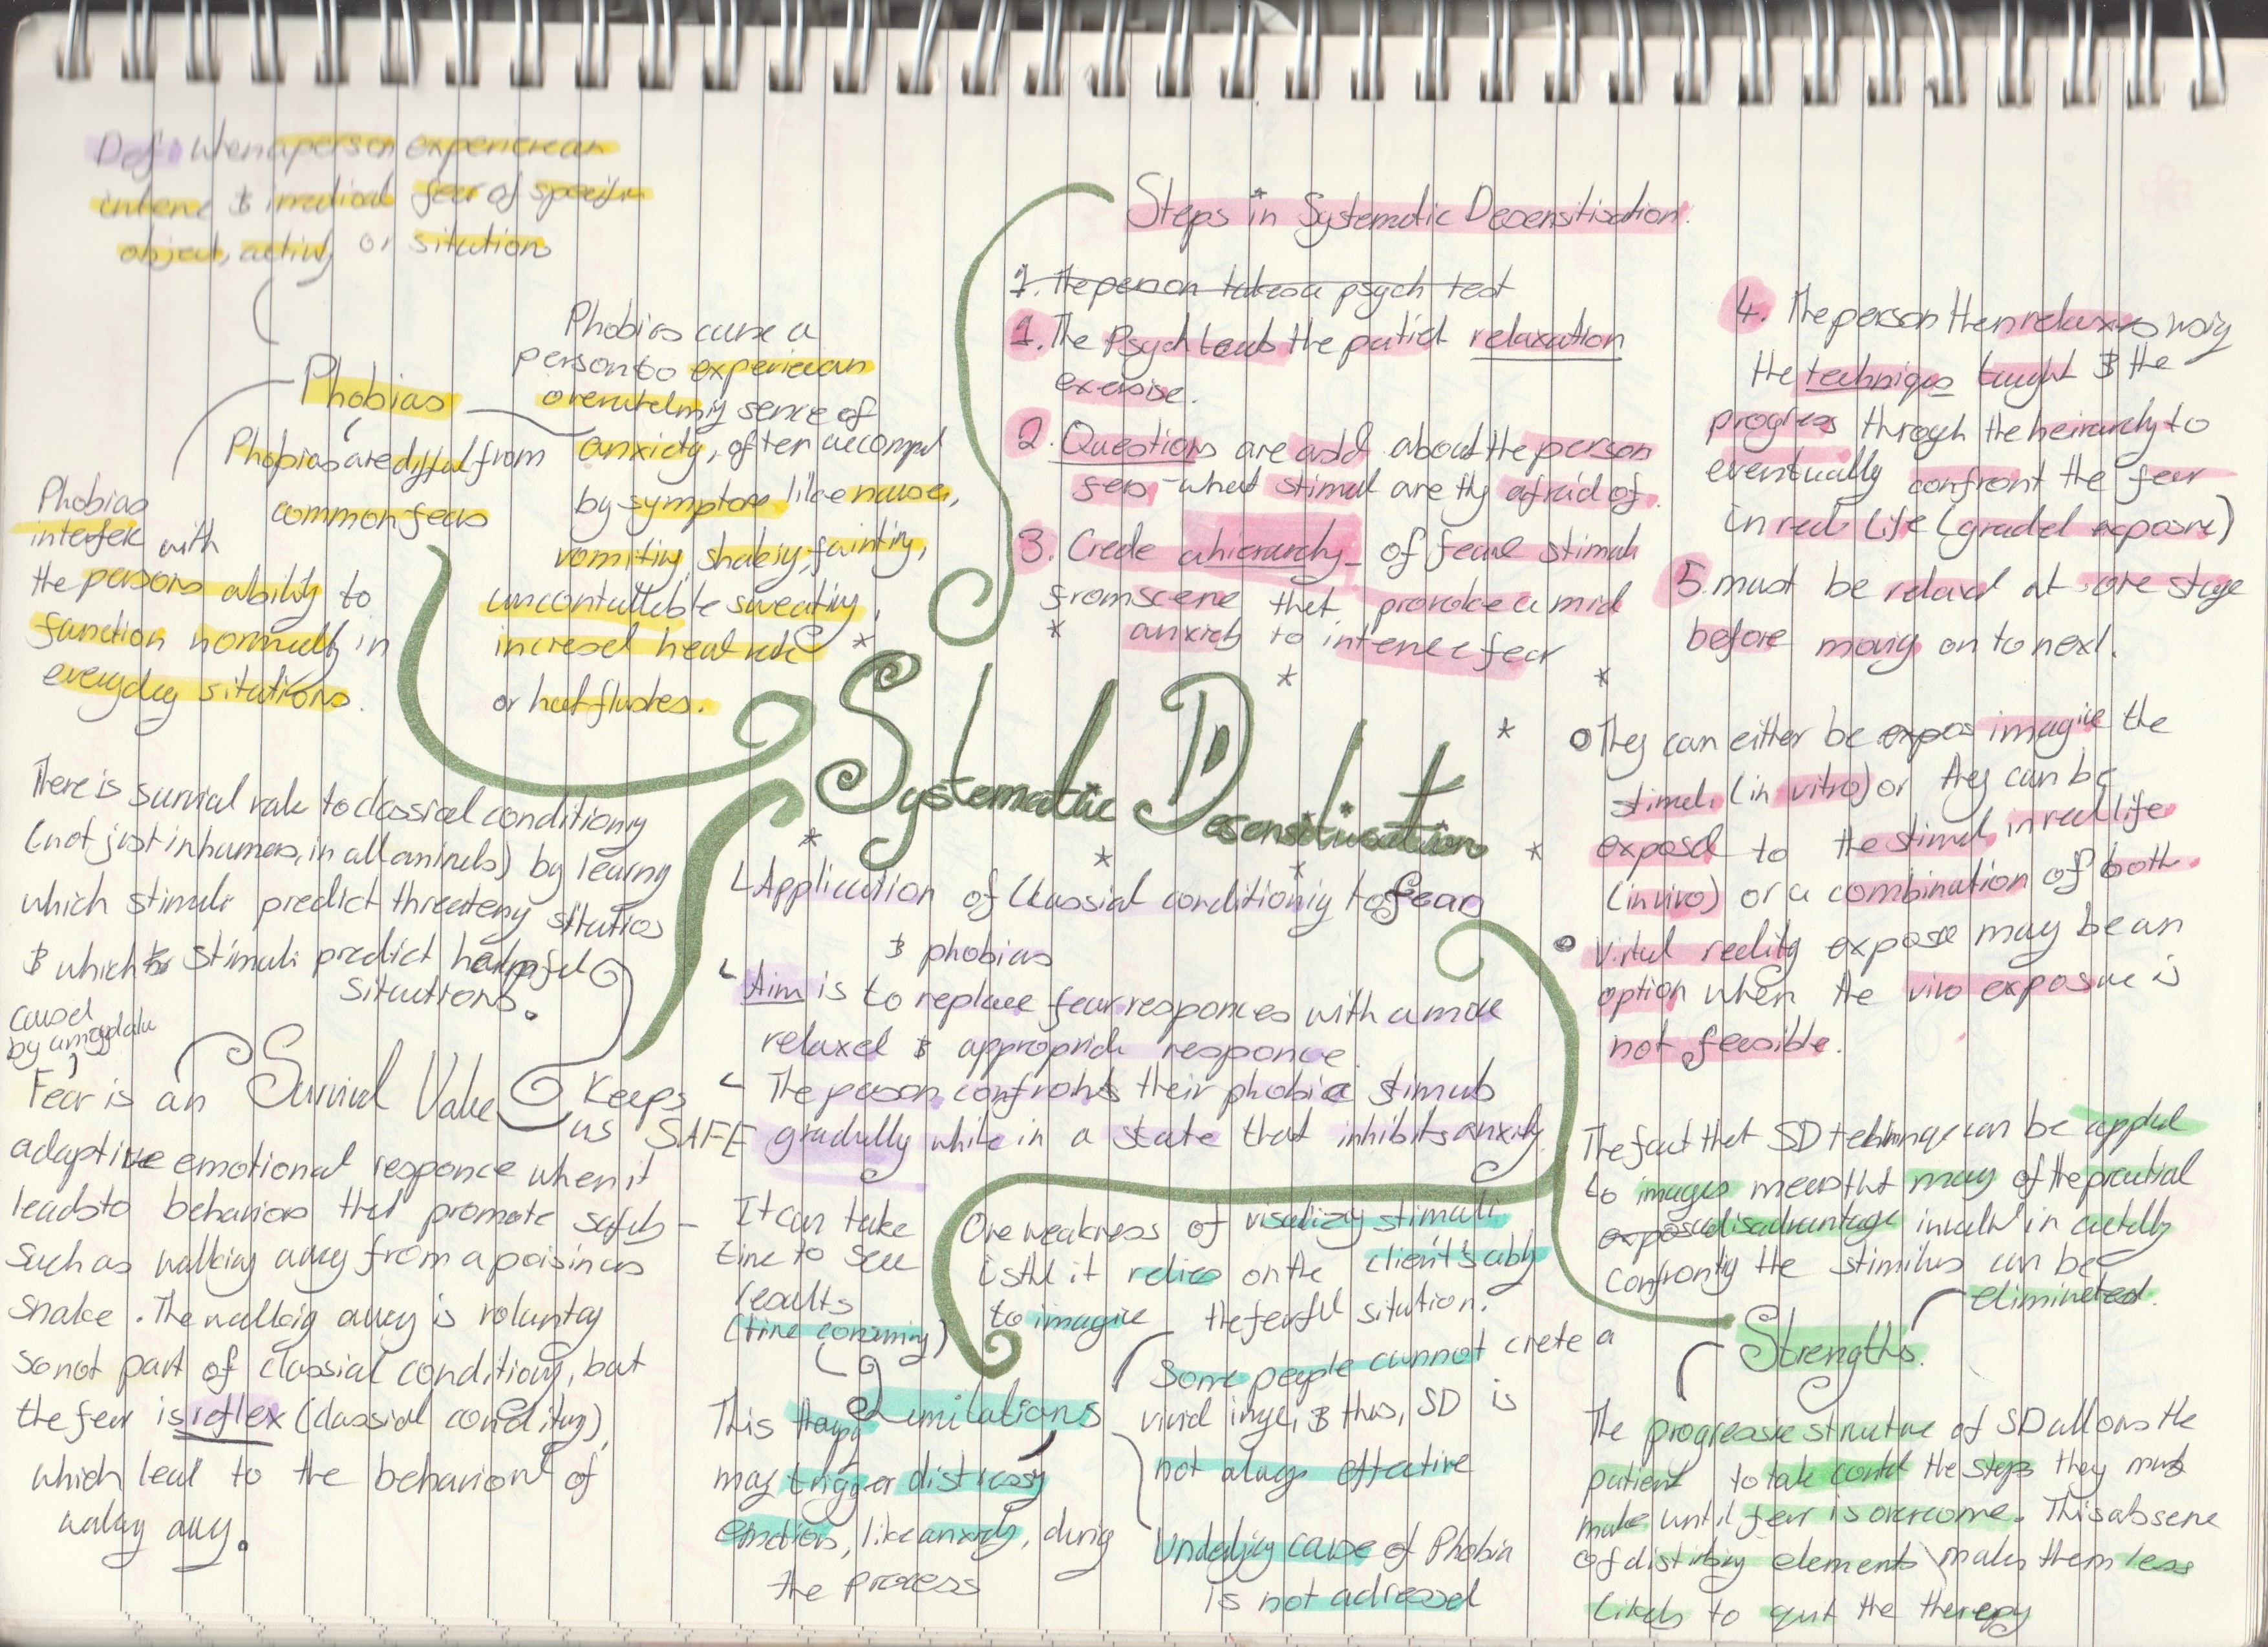 Def: When a person experience an
intene & irrational fear of specific
object, activity or sitution
Phobias
Phobias are difful from
common fears
Phobias cause a
person to experience an
overwhelming sence of
anxiety, often accompd
by symptoms like nausea,
vomiting, shaking, fainting,
uncontrollable sweating,
incresed heat rate
or hot flushes.
Phobias
interfere with
the persons ability to
function normally in
everyday situtions.
There is survival value to classical conditioning
(not just in humans, in all animals) by learning
which stimuli predict threateng situtions
& which stimuli predict helpful
situtions.
caused
by amygdala
Survival Value
Keeps
us SAFE
Fear is an
adaptive emotional responce when it
leads to behaviors that promote safety -
such as walking away from a poisinous
snake. The walking away is voluntary
so not part of classical conditiong, but
the fear is reflex (classical conditiong),
which lead to the behaviour of
walking away.
Systematic Desensitisation
Application of Classical conditioning to fear
& phobias
Aim is to replace fear responces with a more
relaxed & appropriate responce.
The person confronts their phobia stimuls
gradully while in a state that inhibits anxity.
Steps in Systematic Desensitisation.
1. The person takes a psych test
1. The Psych teach the patiet relaxation
exersise.
2. Questions are asked about the person
fers, what stimul are thy afraid of.
3. Create a hierarchy of fearful stimuli
from scene that provoke a mid
anxiety to intence fear
4. The person then relaxes using
the techniqes taught & the
progress through the heirarchy to
eventually confront the fear
in real life (graded exposure)
5. must be relaxed at one stage
before moving on to next.
They can either be expos imagine the
stimuli (in vitro) or they can be
exposed to the stimuli in real life
(in vivo) or a combination of both.
Virtual reality exposure may be an
option when the vivo exposure is
not feasible.
The fact that SD technique can be applied
to images means that many of the practical
expos disadvantage involved in actally
confronting the stimilus can be
eliminated.
Strengths.
The progressive structure of SD allows the
patient to take control the steps they must
make until fear is overcome. This absene
of distirbing elements makes them less
likely to quit the therapy
It can take
time to see
results
(time consuming)
One weakness of visualizing stimuli
is that it relies on the client's ability
to imagine the ferful sitution.
Limitations
Some people cannot crete a
vivid image, & thus, SD is
not always effective
This therapy
may trigger distressing
emotions, like anxiety, during
the process
Underlying cause of Phobia
is not adressed